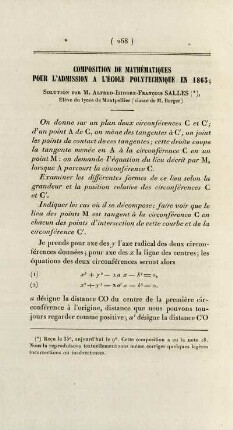 ( 268 )
COMPOSITION DE MATHÉMATIQUES
POUR L'ADMISSION A L'ÉCOLE POLYTECHNIQUE EN 1865;
SOLUTION PAR M. ALFRED-ISIDORE-FRANÇOIS SALLES (*),
Élève du lycée de Montpellier (classe de M. Berger)
On donne sur un plan deux circonférences C et C';
d'un point A de C, on mène des tangentes à C', on joint
les points de contact de ces tangentes; cette droite coupe
la tangente menée en A à la circonférence C en un
point M: on demande l'équation du lieu décrit par M,
lorsque A parcourt la circonférence C.
Examiner les différentes formes de ce lieu selon la
grandeur et la position relative des circonférences C
et C'.
Indiquer les cas où il se décompose; faire voir que le
lieu des points M est tangent à la circonférence C en
chacun des points d'intersection de cette courbe et de la
circonférence C'.
Je prends pour axe des y l'axe radical des deux circon-
férences données; pour axe des x la ligne des centres; les
équations des deux circonférences seront alors
(1) x² + y² - 2a x - b² = 0,
(2) x² + y² - 2a' x - b² = 0,
a désigne la distance CO du centre de la première cir-
conférence à l'origine, distance que nous pouvons tou-
jours regarder comme positive; a' désigne la distance C'O
(*) Reçu le 35e, aujourd'hui le 9e. Cette composition a eu la note 18.
Nous la reproduisons textuellement sans même corriger quelques légères
incorrections ou inadvertances.